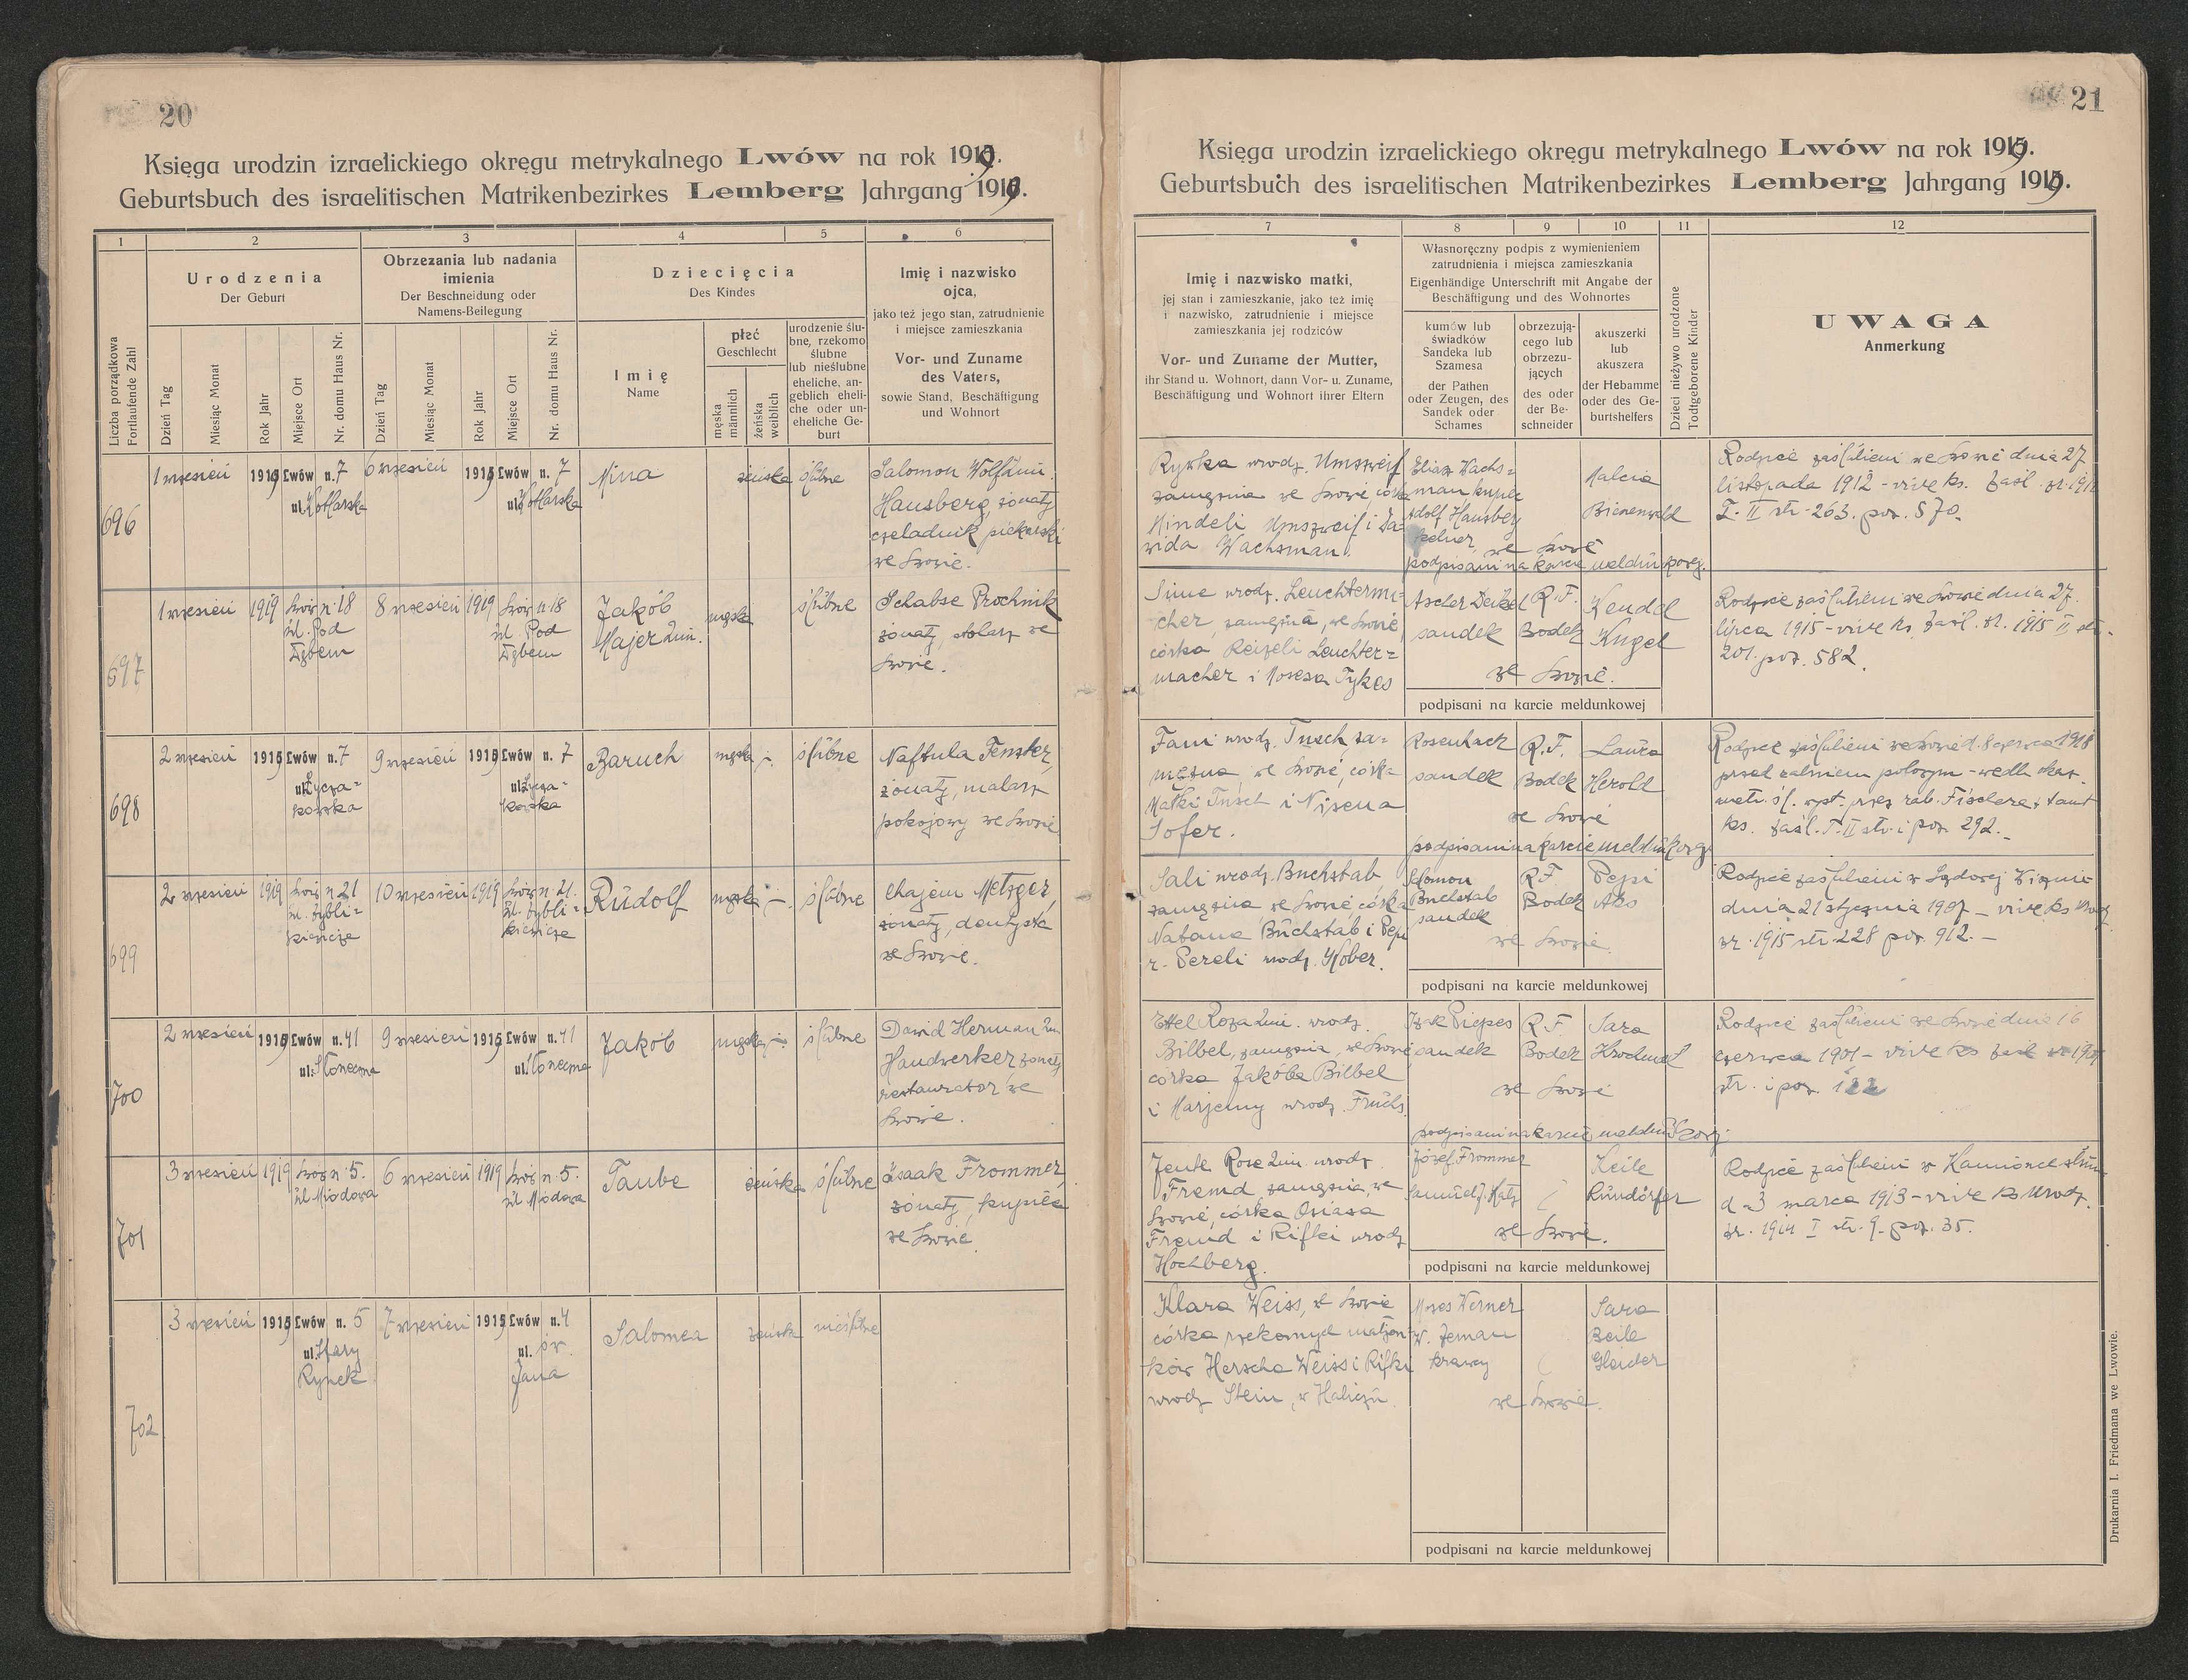 20
Księga urodzin izraelickiego okręgu metrykalnego Lwów na rok 1919.
Geburtsbuch des israelitischen Matrikenbezirkes Lemberg Jahrgang 1919.
1 2 3 4 5 6
Liczba porządkowa
Fortlaufende Zahl
Urodzenia
Der Geburt
Obrzezania lub nadania
imienia
Der Beschneidung oder
Namens-Beilegung
Dziecięcia
Des Kindes
Dzień Tag
Miesiąc Monat
Rok Jahr
Miejsce Ort
Nr. domu Haus Nr.
Dzień Tag
Miesiąc Monat
Rok Jahr
Miejsce Ort
Nr. domu Haus Nr.
Imię
Name
płeć
Geschlecht
męska
männlich
żeńska
weiblich
urodzenie ślu-
bne, rzekomo
ślubne
lub nieślubne
eheliche, an-
geblich eheli-
che oder un-
eheliche Ge-
burt
Imię i nazwisko
ojca,
jako też jego stan, zatrudnienie
i miejsce zamieszkania
Vor- und Zuname
des Vaters,
sowie Stand, Beschäftigung
und Wohnort
696
1 wrzesień 1919 Lwów n. 7
ul. Kotlarska
6 wrzesień 1919 Lwów n. 7
ul. Kotlarska
Mina
żeńska
ślubne
Salomon Wolf 2im.
Hausberg, żonaty
czeladnik piekarski
we Lwowie.
697
1 wrzesień 1919 Lwów n. 18
ul. Pod
Dębem
8 wrzesień 1919 Lwów n. 18
ul. Pod
Dębem
Jakób
Majer 2im.
męska
ślubne
Schabse Prochnik
żonaty, stolarz we
Lwowie.
698
2 wrzesień 1919 Lwów n. 7
ul. Łycza-
kowska
9 wrzesień 1919 Lwów n. 7
ul. Łycza-
kowska
Baruch
męska -
ślubne
Naftula Fenster,
żonaty, malarz
pokojowy we Lwowie
699
2 wrzesień 1919 Lwów n. 21
ul. Zybli-
kiewicza
10 wrzesień 1919 Lwów n. 21.
ul. Zybli-
kiewicza
Rudolf
męska -
ślubne
Chajem Metzger,
żonaty, dentysta
we Lwowie.
700
2 wrzesień 1919 Lwów n. 41
ul. Słoneczna
9 wrzesień 1919 Lwów n. 41
ul. Słoneczna
Jakób
męska -
ślubne
Dawid Herman 2im
Handwerker, żonaty
restaurator we
Lwowie.
701
3 wrzesień 1919 Lwów n. 5.
ul. Miodowa
6 wrzesień 1919 Lwów n. 5.
ul. Miodowa
Taube
żeńska
ślubne
Isaak Frommer,
żonaty, kupiec
we Lwowie
702
3 wrzesień 1919 Lwów n. 5
ul. Stary
Rynek
7 wrzesień 1919 Lwów n. 4
ul. św.
Jana
Salomea
żeńska
nieślubne
21
Księga urodzin izraelickiego okręgu metrykalnego Lwów na rok 1919.
Geburtsbuch des israelitischen Matrikenbezirkes Lemberg Jahrgang 1919.
7 8 9 10 11 12
Imię i nazwisko matki,
jej stan i zamieszkanie, jako też imię
i nazwisko, zatrudnienie i miejsce
zamieszkania jej rodziców
Vor- und Zuname der Mutter,
ihr Stand u. Wohnort, dann Vor- u. Zuname,
Beschäftigung und Wohnort ihrer Eltern
Własnoręczny podpis z wymienieniem
zatrudnienia i miejsca zamieszkania
Eigenhändige Unterschrift mit Angabe der
Beschäftigung und des Wohnortes
kumów lub
świadków
Sandeka lub
Szamesa
der Pathen
oder Zeugen, des
Sandek oder
Schames
obrzezują-
cego lub
obrzezu-
jących
des oder
der Be-
schneider
akuszerki
lub
akuszera
der Hebamme
oder des Ge-
burtshelfers
Dzieci nieżywo urodzone
Todtgeborene Kinder
UWAGA
Anmerkung
Rywka urodz. Umszweif
zamężna we Lwowie, córka
Hindeli Umszweif i Da-
wida Wachsman.
Eliasz Wachs-
man kupiec
Adolf Hausberg
kelner
Malcia
Bienenwald
we Lwowie
podpisani na karcie meldunkowej.
Rodzice zaślubieni we Lwowie dnia 27
listopada 1912 - vive ks. zaśl. zr. 1912
T. II str. 263. poz. 570.
Sime urodz. Leuchterma-
cher, zamężna, we Lwowie,
córka Reizeli Leuchter-
macher i Mosesa Tykes
Ascher Deikel
sandek
R.F.
Bodek
Kendel
Kugel
we Lwowie.
podpisani na karcie meldunkowej
Rodzice zaślubieni we Lwowie dnia 27.
lipca 1915 - vive ks. zaśl. zr. 1915 II str.
201. poz. 582.
Fani urodz. Tusch, za-
mężna, we Lwowie, córka
Matki Tusch i Nisena
Sofer.
Rosenhach
sandek
R.F.
Bodek
Laura
Herold
we Lwowie
podpisani na karcie meldunkowej
Rodzice zaślubieni we Lwowie d. 8 czerwca 1918
przed
metr. śl. wyst. przez rab. Fischera
ks. zaśl. T. II str. i poz. 292.
Sali urodz. Buchstab
zamężna, we Lwowie, córka
Natana Buchstab i Pepi
r. Pereli urodz. Kober.
Salomon
Buchstab
sandek
R.F.
Bodek
Pepi
Aks
we Lwowie
podpisani na karcie meldunkowej
Rodzice zaślubieni w Sądowej Wiszni
dnia 21 stycznia 1907 - vive ks. urodz
zr. 1915 str. 228 poz. 912. -
Ettel Roza 2im. urodz.
Bilbel, zamężna, we Lwowie,
córka Jakóba Bilbel
i Marjemy urodz. Fruchs.
Izak Piepes
sandek
R.F.
Bodek
Sara
Krochmal
we Lwowie
podpisani na karcie meldunkowej
Rodzice zaślubieni we Lwowie dnia 16
czerwca 1901 - vive ks. zaśl. zr. 1901
str. i poz. 122
Jente Rose 2im. urodz
Fremd, zamężna, we
Lwowie, córka Osiasa
Fremd i Rifki urodz
Hochberg.
Józef Frommer
Samuel J. Katz
Keile
Rundörfer
we Lwowie.
podpisani na karcie meldunkowej
Rodzice zaślubieni w Kamionce strum.
d. 3 marca 1913 - vive ks. urodz.
zr. 1914 I str. 9. poz. 35.
Klara Weiss, we Lwowie
córka rzekomych małżon-
ków Herscha Weiss i Rifki
urodz Stein, w Haliczu.
Moses Werner
krawcy
Sara
Beile
Gleider
we Lwowie.
podpisani na karcie meldunkowej
Drukarnia I. Friedmana we Lwowie.